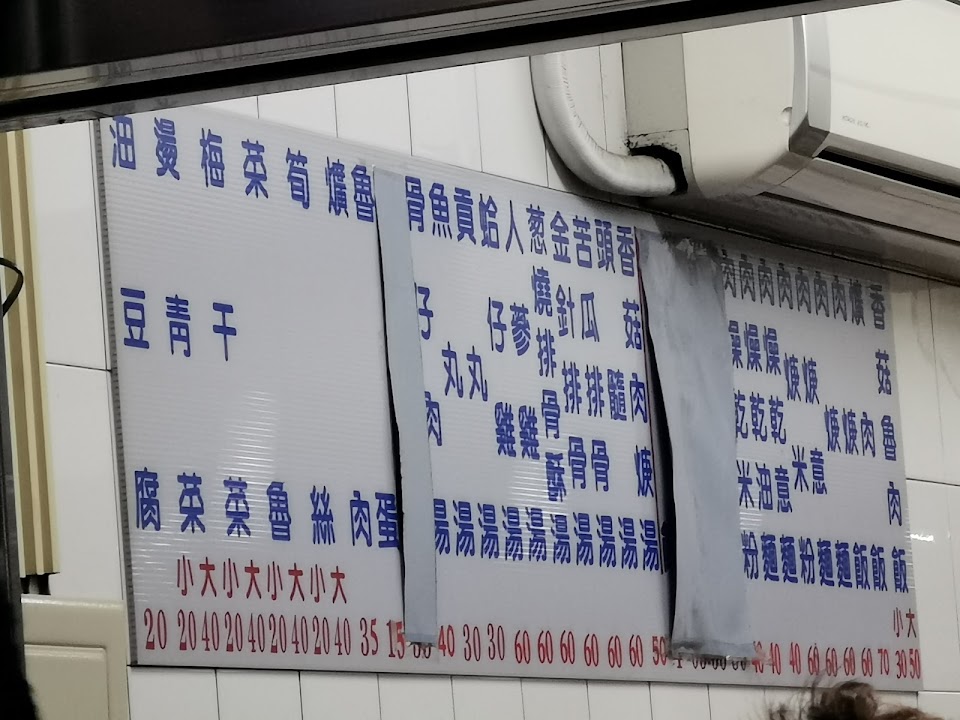 香菇魯肉飯 小30 大50
爌肉飯 70
肉焿飯 60
肉焿麵 60
肉焿意麵 60
肉焿米粉 60
肉燥乾意麵 40
肉燥乾油麵 40
肉燥乾米粉 40
香菇肉焿湯 50
頭髓湯 60
苦瓜排骨湯 60
金針排骨湯 60
葱燒排骨酥湯 60
人蔘雞湯 60
蛤仔雞湯 60
貢丸湯 30
魚丸湯 30
骨仔肉湯 40
魯蛋 15
爌肉 35
筍絲 小20 大40
菜魯 小20 大40
梅干菜 小20 大40
燙青菜 小20 大40
油豆腐 20